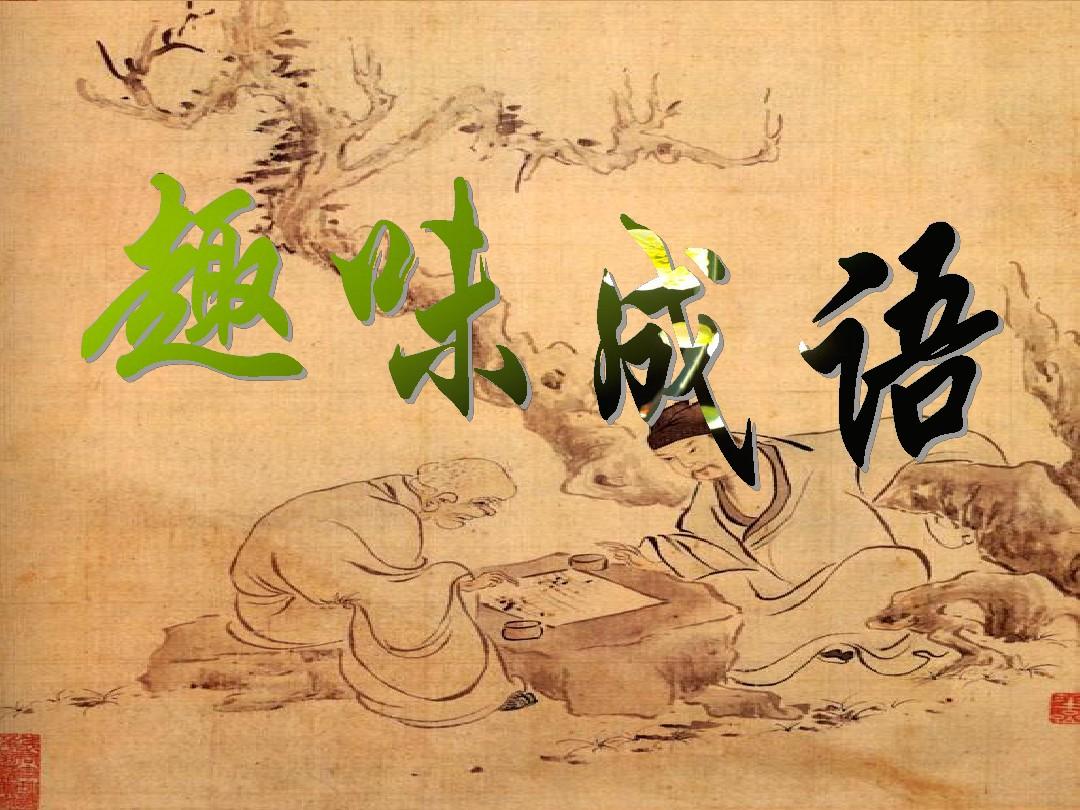 趣味成语